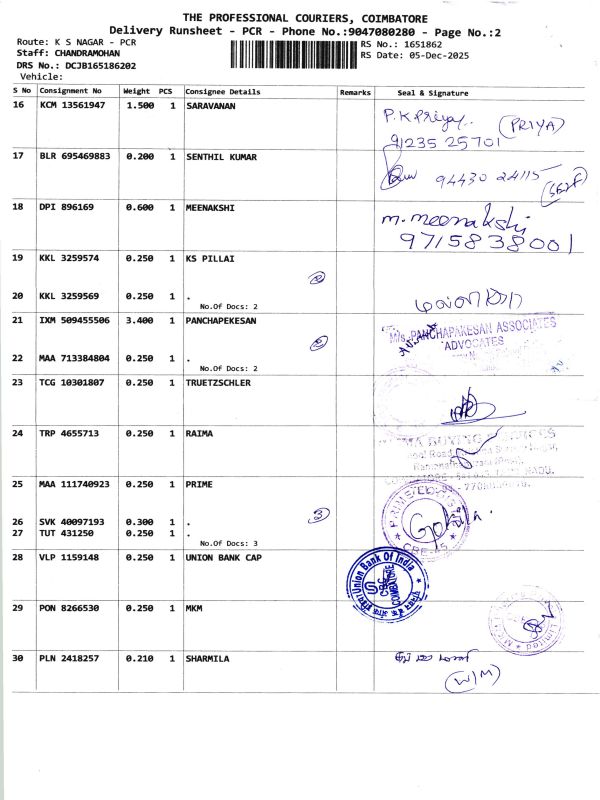 THE PROFESSIONAL COURIERS, COIMBATORE
Delivery Runsheet - PCR - Phone No.:9047080280 - Page No.:2
Route: K S NAGAR - PCR
RS No.: 1651862
Staff: CHANDRAMOHAN
RS Date: 05-Dec-2025
DRS No.: DCJB165186202
Vehicle:
S No Consignment No Weight PCS Consignee Details Remarks Seal & Signature
16 KCM 13561947 1.500 1 SARAVANAN
P.K Priya. (PRIYA)
91235 25701
17 BLR 695469883 0.200 1 SENTHIL KUMAR
94430 24115 (self)
18 DPI 896169 0.600 1 MEENAKSHI
m. meenakshi
9715838001
19 KKL 3259574 0.250 1 KS PILLAI
2
20 KKL 3259569 0.250 1 .
No.Of Docs: 2
21 IXM 509455506 3.400 1 PANCHAPEKESAN
M/s. PANCHAPAKESAN ASSOCIATES
ADVOCATES
2
22 MAA 713384804 0.250 1 .
No.Of Docs: 2
23 TCG 10301807 0.250 1 TRUETZSCHLER
24 TRP 4655713 0.250 1 RAIMA
25 MAA 111740923 0.250 1 PRIME
3
26 SVK 40097193 0.300 1 .
27 TUT 431250 0.250 1 .
No.Of Docs: 3
Gokila.
CBE-45
28 VLP 1159148 0.250 1 UNION BANK CAP
Union Bank Of India
COIMBATORE
29 PON 8266530 0.250 1 MKM
Limited
30 PLN 2418257 0.210 1 SHARMILA
(W/M)